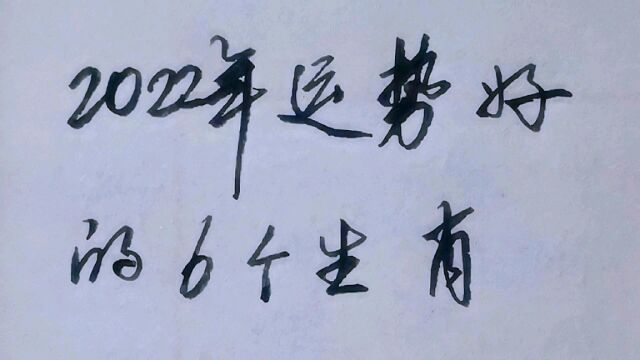 2022年运势好
的6个生肖